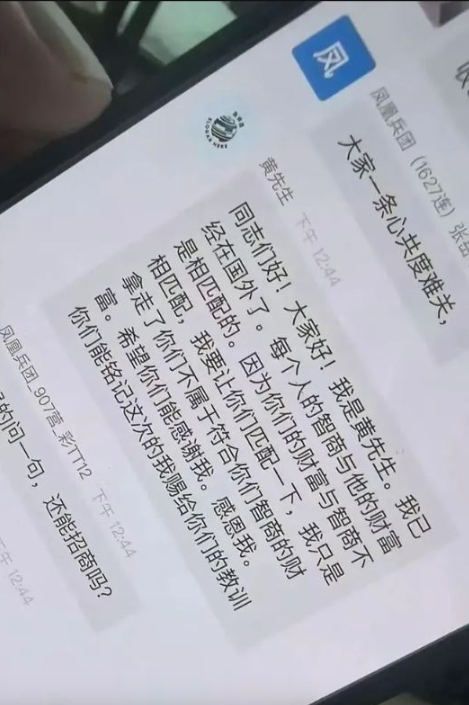 收
凤
凤凰兵团（1627连）张岳
大家一条心共度难关，
黄先生 下午 12:44
同志们好！大家好！我是黄先生。我已
经在国外了。每个人的智商与他的财富
是相匹配的。因为你们的财富与智商不
相匹配，我要让你们匹配一下，我只是
拿走了你们不属于符合你们智商的财
富。希望你们能感谢我。感恩我。
你们能铭记这次的我赐给你们的教训
凤凰兵团_907营_彩T112 下午 12:44
的问一句，还能招商吗？
下午 12:44